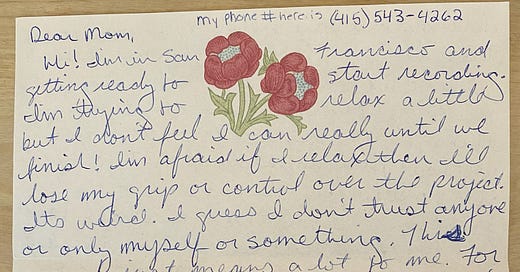 my phone # here is (415) 543-4262
Dear Mom,
Hi! I'm in San Francisco and
getting ready to start recording.
I'm trying to relax a little
but I don't feel I can really until we
finish! I'm afraid if I relax then I'll
lose my grip or control over the project.
Its weird. I guess I don't trust anyone
or only myself or something. This
just means a lot to me. For